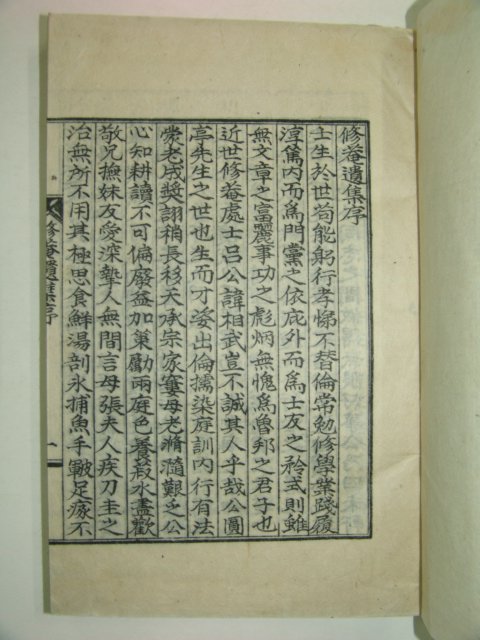 修菴遺集序
士生於世苟能躬行孝悌不替倫常勉修學業踐履
淳篤內而爲門黨之依庇外而爲士友之矜式則雖
無文章之富麗事功之彪炳無愧爲魯邦之君子也
近世修菴處士呂公諱相武豈不誠其人乎哉公圓
亭先生之世也生而才姿出倫擩染庭訓內行有法
老咸奬詡稍長移天承宗家寠母老滫瀡艱乏公
心知耕讀不可偏廢益加策勵兩庭色養菽水盡歡
敬兄撫妹友愛深摯人無間言母張夫人疾刀圭之
治無所不用其極思食鮮湯剖氷捕魚手皸足瘃不
修菴遺集序
一